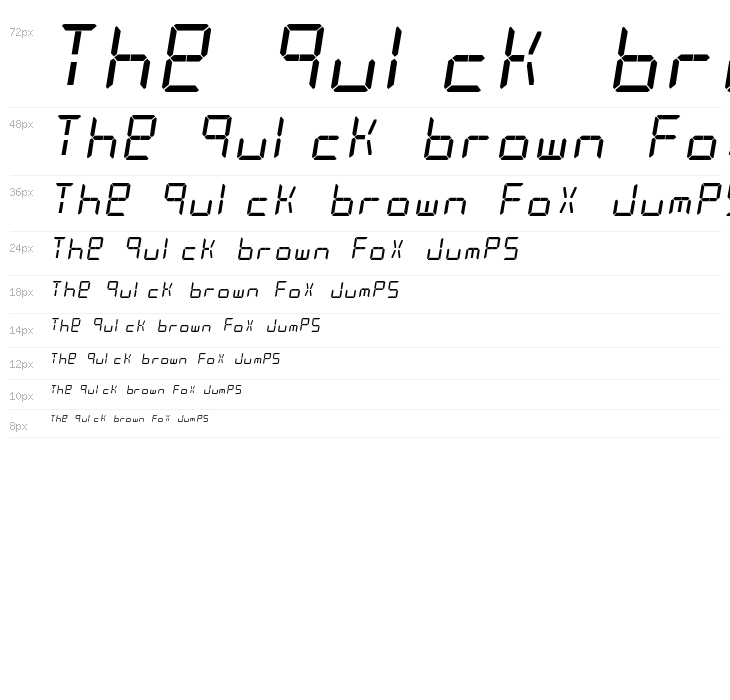 72px The quick br
48px The quick brown Fo
36px The quick brown Fox JumPS
24px The quick brown Fox JumPS
18px The quick brown Fox JumPS
14px The quick brown Fox JumPS
12px The quick brown Fox JumPS
10px The quick brown Fox JumPS
8px The quick brown Fox JumPS